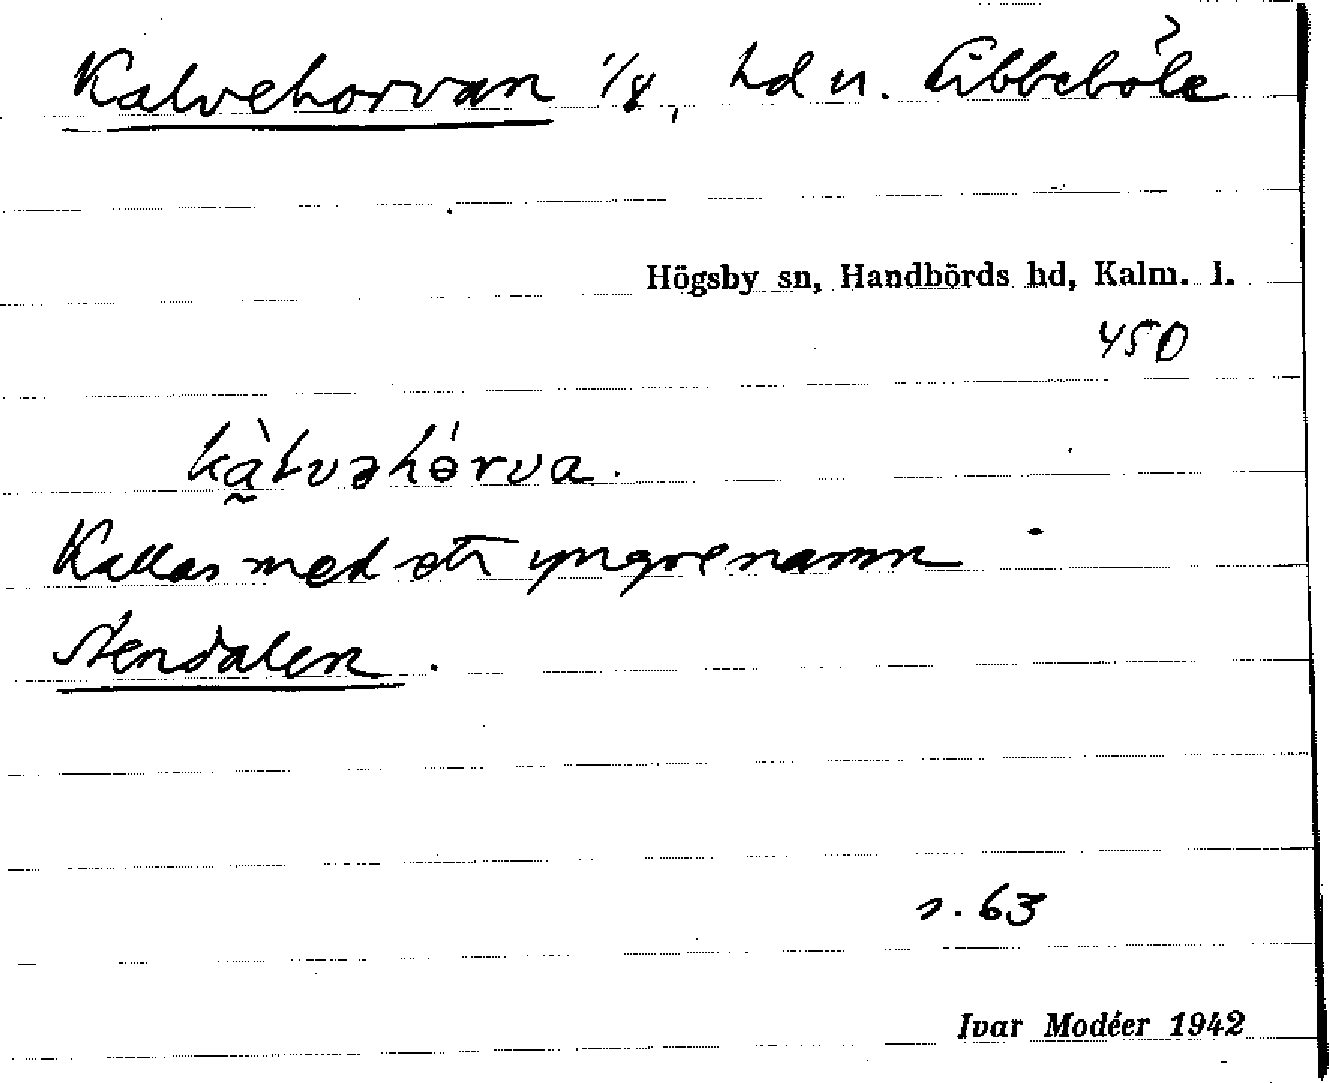 Kalvehorvan 1/8, hd u. Libbeböle
Högsby sn, Handbörds hd, Kalm. l.
45D
kàlvəhórva.
Kallas med ett yngre namn
Stendalen.
s. 63
Ivar Modéer 1942